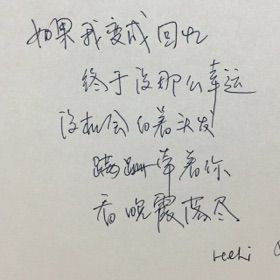 如果我变成回忆
终于没那么幸运
没机会白着头发
蹒跚牵着你
看晚霞落尽